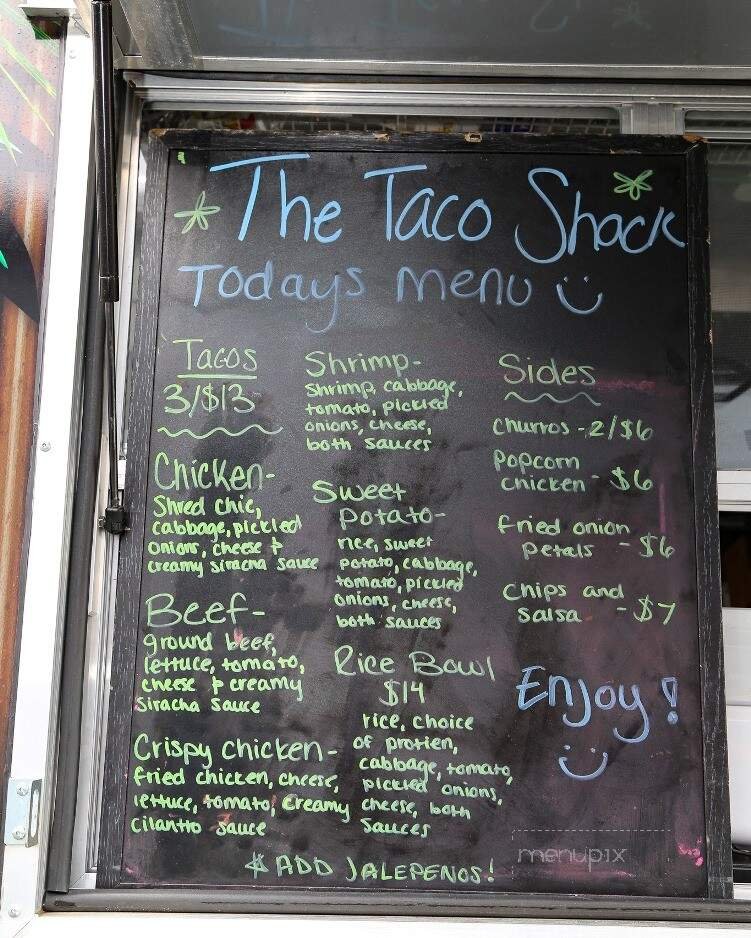 The Taco Shack
Todays menu
Tacos
3/$13
Chicken-
Shred chic,
cabbage, pickled
onions, cheese &
creamy siracha sauce
Beef-
ground beef,
lettuce, tomato,
cheese & creamy
siracha sauce
Crispy chicken-
fried chicken, cheese,
lettuce, tomato, creamy
cilantro sauce
Shrimp-
Shrimp, cabbage,
tomato, pickled
onions, cheese,
both sauces
Sweet
potato-
rice, sweet
potato, cabbage,
tomato, pickled
onions, cheese,
both sauces
Rice Bowl
$14
rice, choice
of protien,
cabbage, tomato,
pickled onions,
cheese, both
sauces
Sides
churros - 2/$6
Popcorn
chicken - $6
fried onion
petals - $6
chips and
salsa - $7
Enjoy!
* ADD JALEPENOS!
menupix